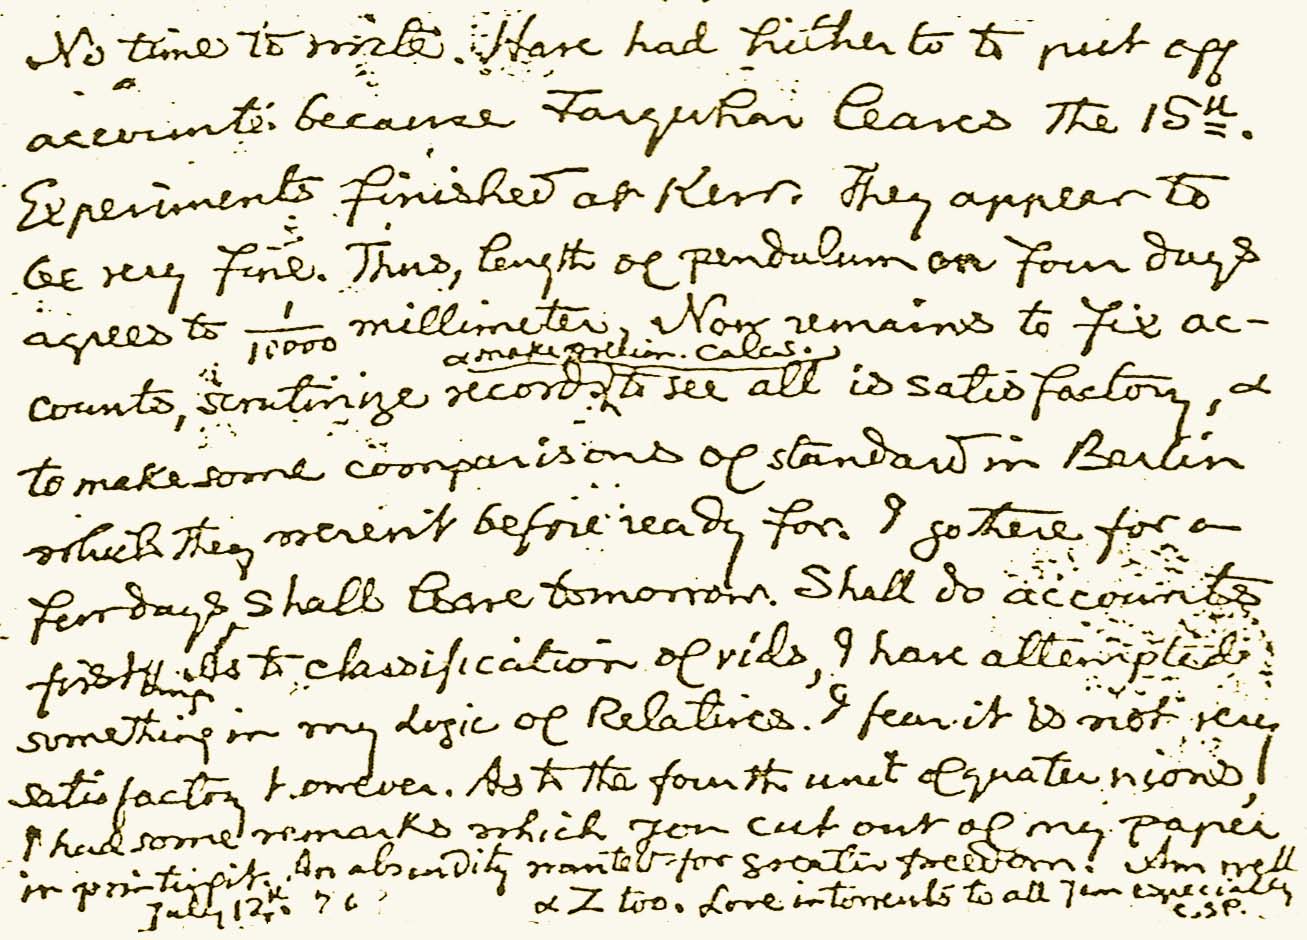 No time to write. Have had hitherto to put off
accounts because Farquhar leaves the 15th.
Experiments finished at Kew. They appear to
be very fine. Thus, length of pendulum on four days
agrees to 1/10000 millimeter. Now remains to fix ac-
& make prelim. calcs.
counts, scrutinize records, to see all is satisfactory, &
to make some comparisons of standard in Berlin
which they weren't before ready for. I go there for a
few days, shall leave tomorrow. Shall do accounts
first. As to classification of vids, I have attempted
something in my Logic of Relatives. I fear it is not very
satisfactory however. As to the fourth unit of quaternions,
I had some remarks which you cut out of my paper
in printing it. An absurdity wanted for greater freedom. Am well
July 12th 76 & Z too. Love in torrents to all Jem especially
C.S.P.